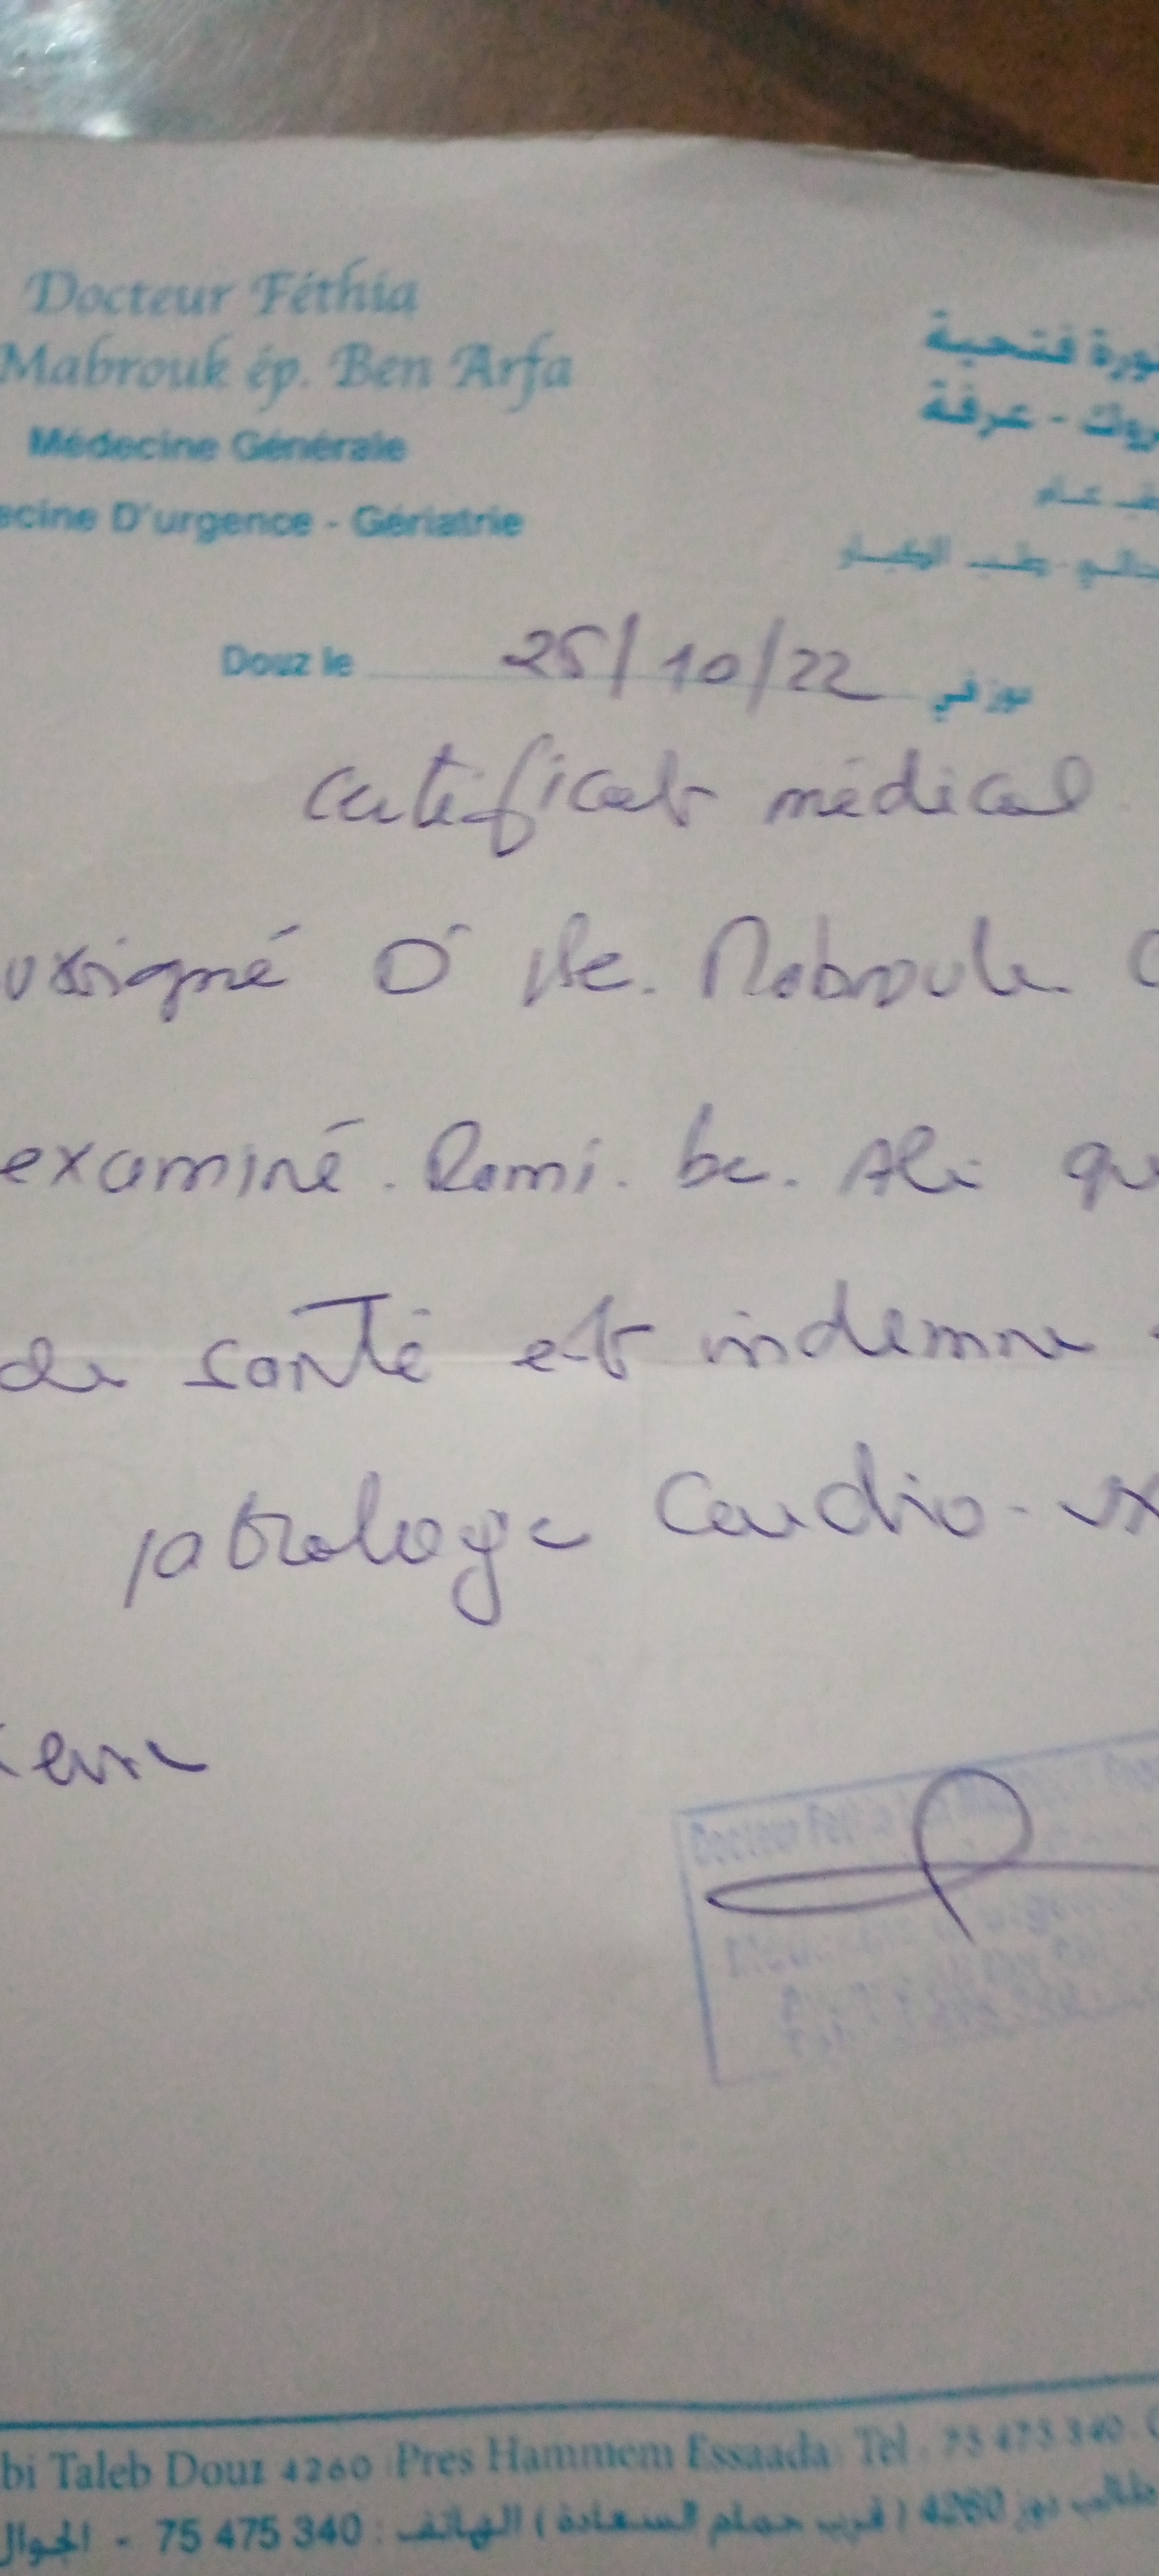 Docteur Féthia
Mabrouk ép. Ben Arfa
Médecine Générale
ecine D'urgence - Gériatrie
ورة فتحية
روك - عرفة
طب عام
طب الكبار
Douz le 25/10/22 دوز في
Certificat médical
ussigné Dr Be. Mabrouk
examiné. Rami. be. Ali qu
de santé et indemne
pathologie Cardio-va
Docteur
bi Taleb Douz 4260 Pres Hammem Essaada Tél. 75 475 340
طالب دوز 4260 ( قرب حمام السعادة ) الهاتف : 75 475 340 - الجوال